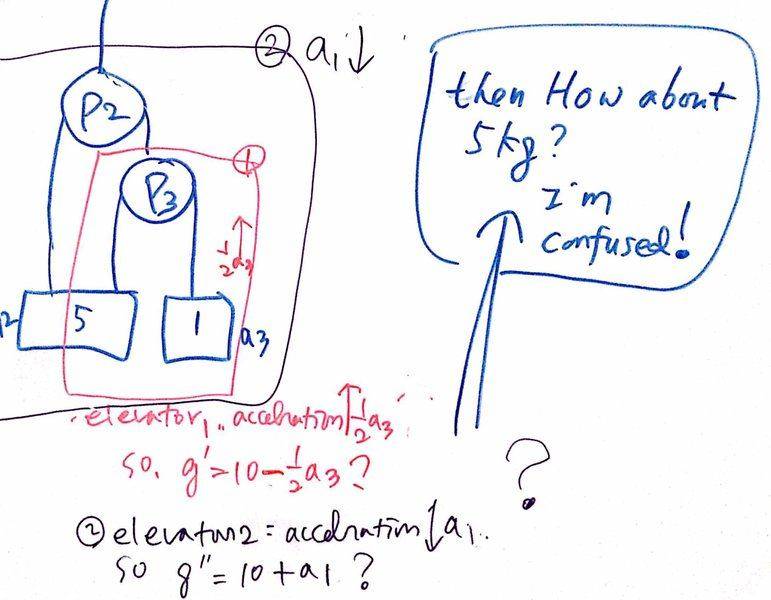 ② a₁↓
P2
then How about
5kg?
I'm
confused!
①
P3
½a₃
5
1
a3
elevator₁.. acceleration↑½a₃
so, g'=10-½a₃?
?
② elevator2 = acceleration↓a₁..
so g"=10+a1 ?